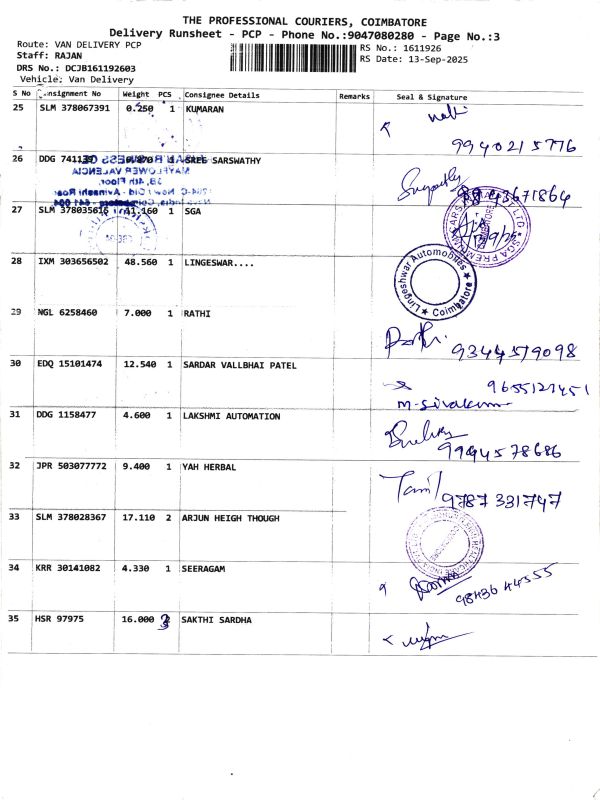 THE PROFESSIONAL COURIERS, COIMBATORE
Delivery Runsheet - PCP - Phone No.:9047080280 - Page No.:3
Route: VAN DELIVERY PCP
Staff: RAJAN
DRS No.: DCJB161192603
Vehicle: Van Delivery
RS No.: 1611926
RS Date: 13-Sep-2025
S No Consignment No Weight PCS Consignee Details Remarks Seal & Signature
25 SLM 378067391 0.250 1 KUMARAN
9940215776
26 DDG 1 SREE SARSWATHY
27 SLM 378035616 41.160 1 SGA
SGA CARS
28 IXM 303656502 48.560 1 LINGESWAR....
Lingeshwar Automobiles ★ Coimbatore ★
29 NGL 6258460 7.000 1 RATHI
9344579098
30 EDQ 15101474 12.540 1 SARDAR VALLBHAI PATEL
m-sivakumar
31 DDG 1158477 4.600 1 LAKSHMI AUTOMATION
9994578686
32 JPR 503077772 9.400 1 YAH HERBAL
Tamil
9787331747
33 SLM 378028367 17.110 2 ARJUN HEIGH THOUGH
34 KRR 30141082 4.330 1 SEERAGAM
9843644555
35 HSR 97975 16.000 3 SAKTHI SARDHA